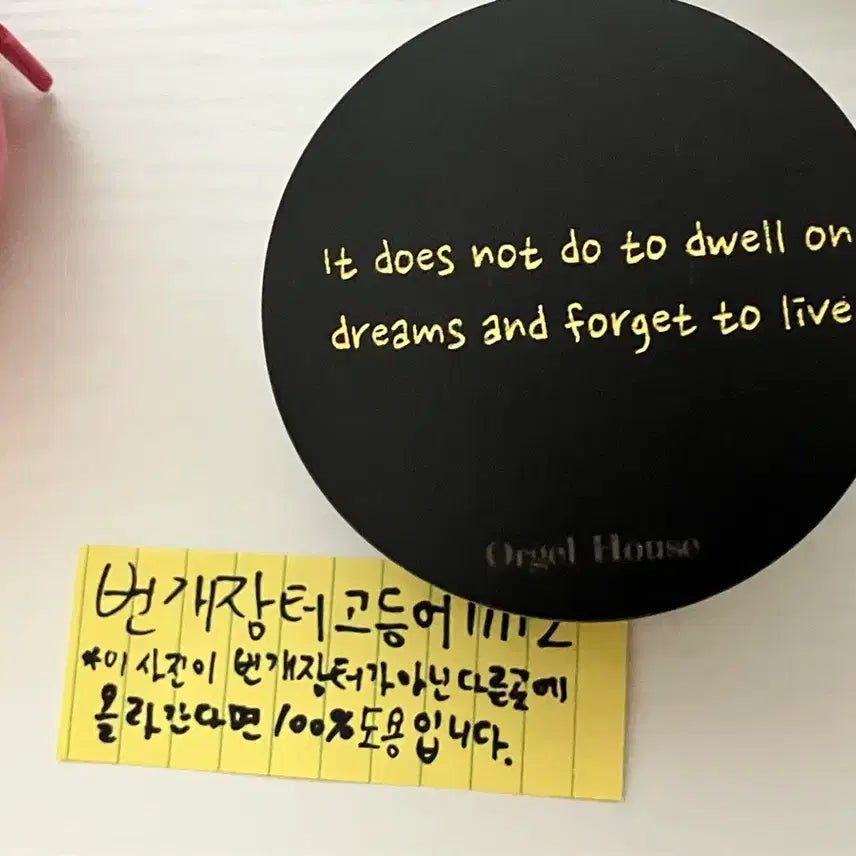 It does not do to dwell on
dreams and forget to live
Orgel House
번개장터 고등어
*이 사진이 번개장터가 아닌 다른곳에
올라간다면 100% 도용입니다.